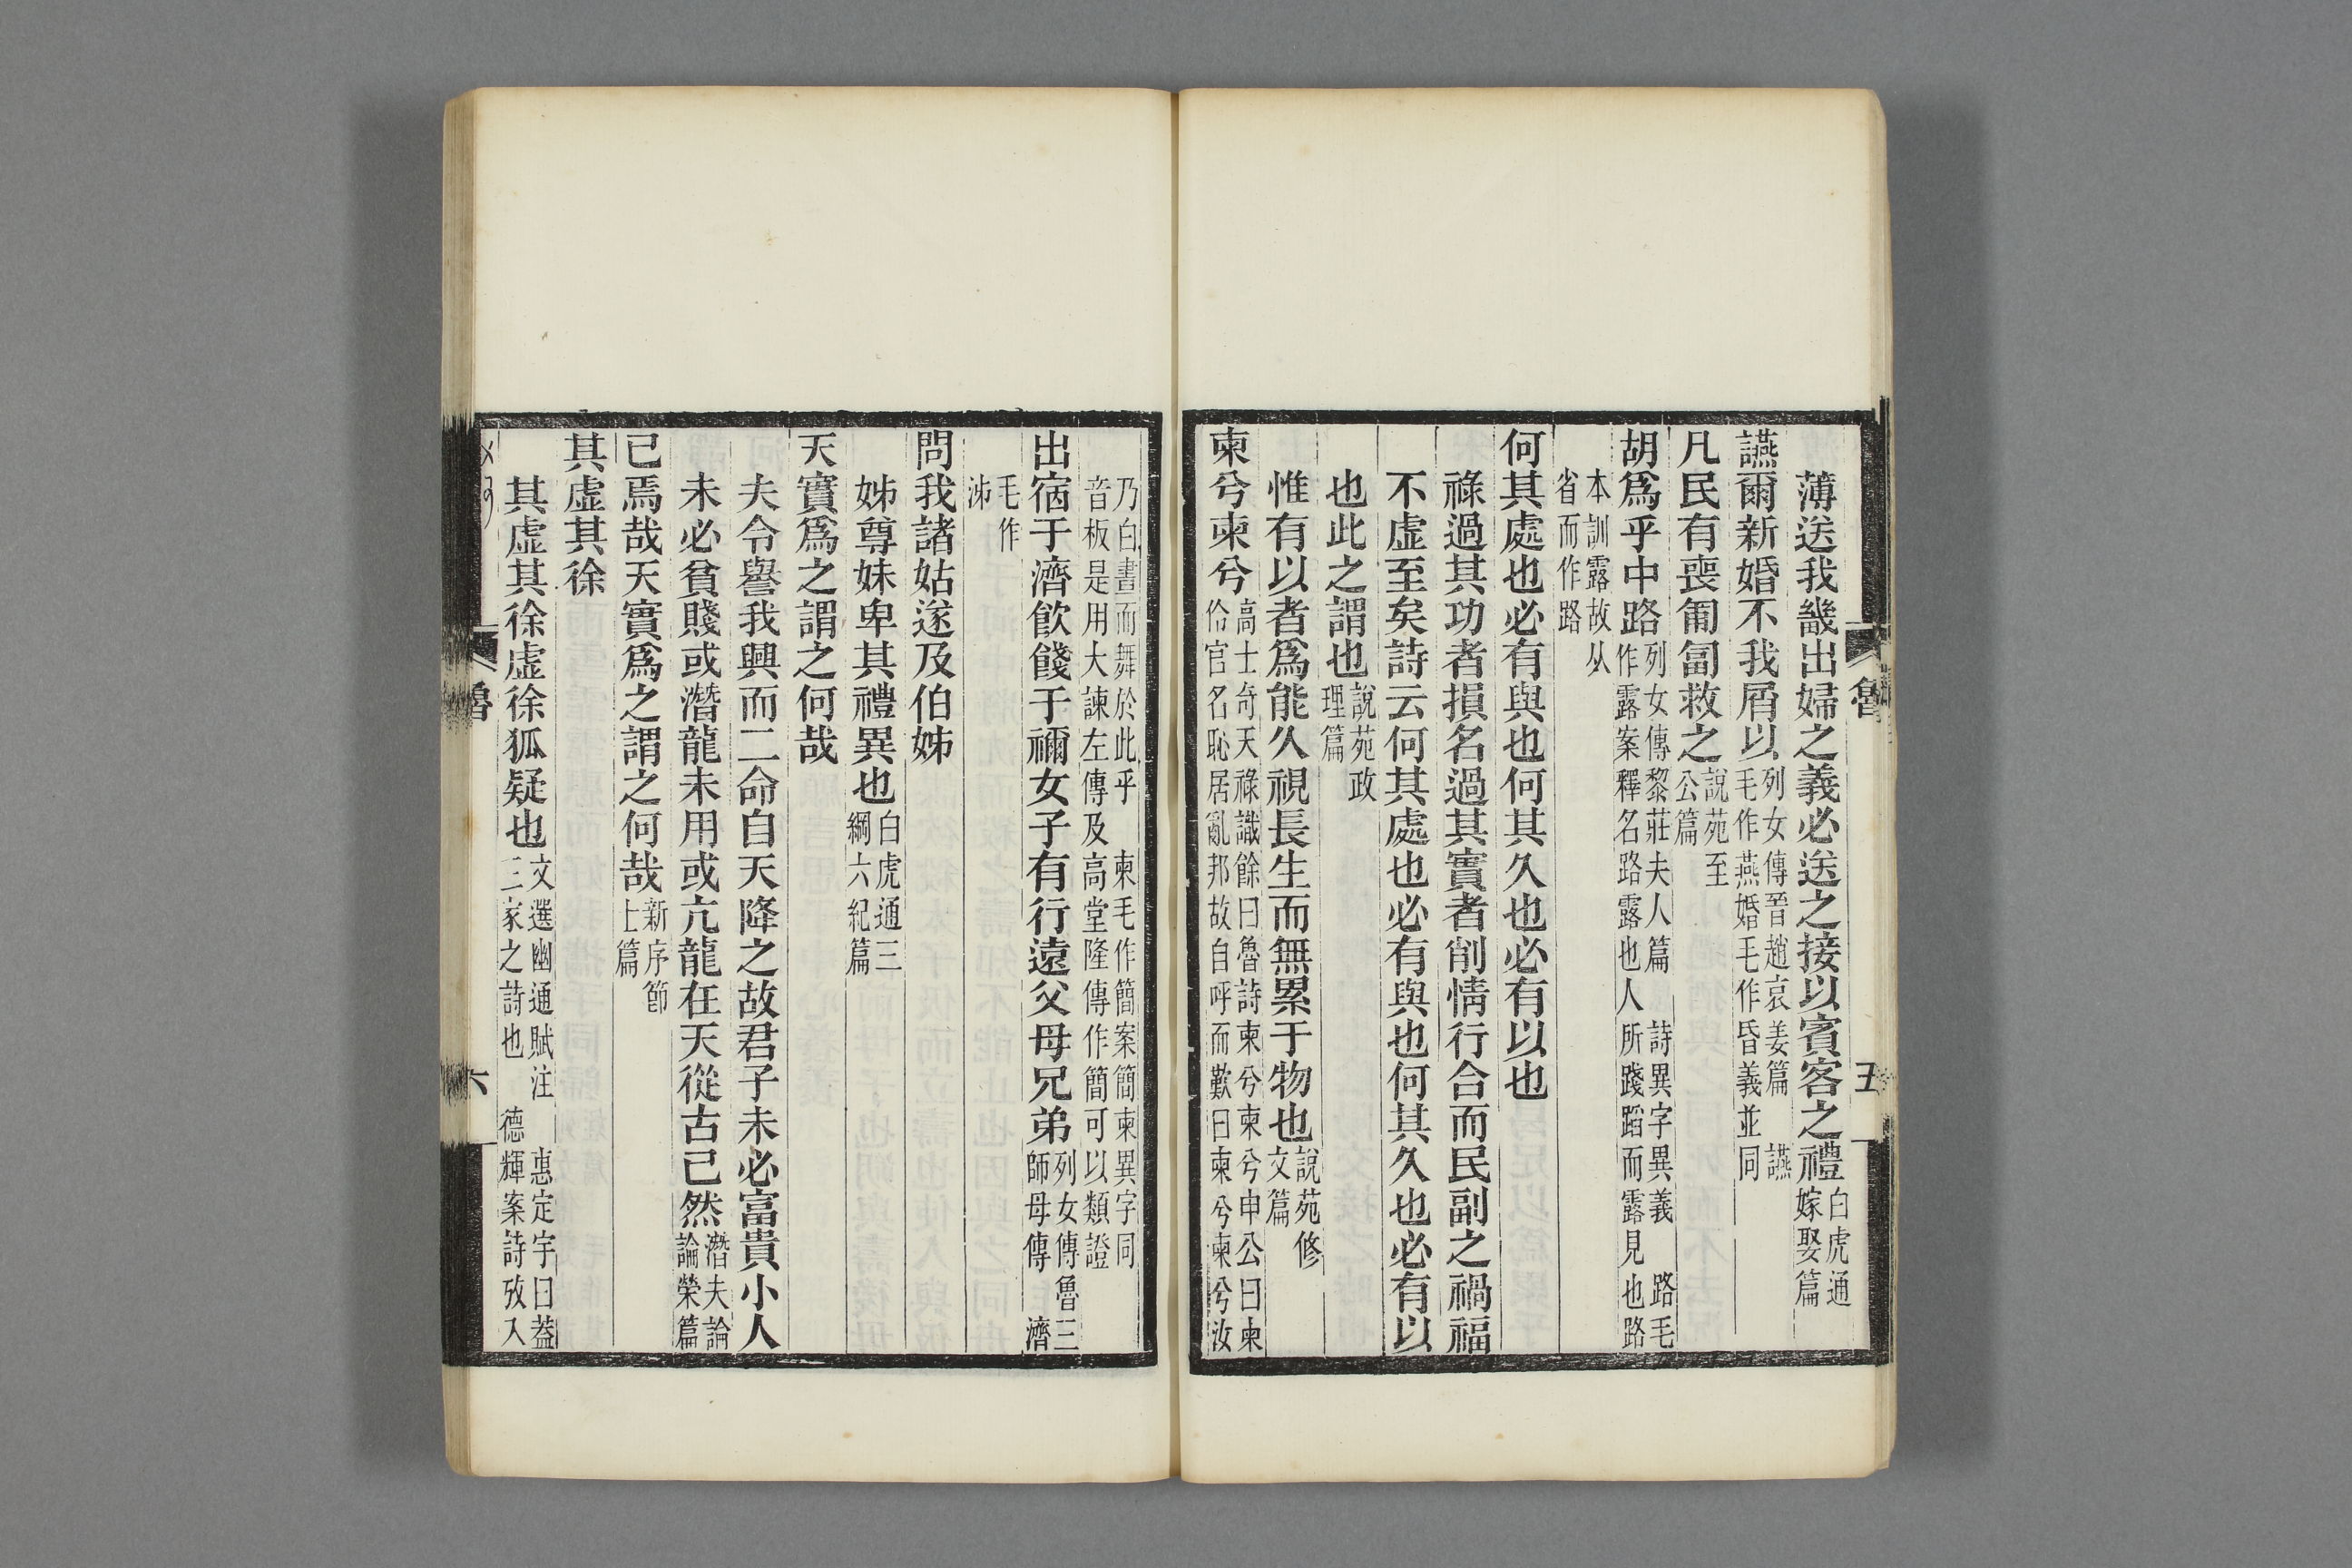 薄送我畿出婦之義必送之接以賓客之禮白虎通嫁娶篇
讌爾新婚不我屑以列女傳晉趙哀姜篇　讌毛作燕婚毛作昏義並同
凡民有喪匍匐救之說苑至公篇
胡爲乎中路列女傳黎莊夫人篇　詩異字異義　路毛作露案釋名路露也人所踐蹈而露見也路
本訓露故从省而作路
何其處也必有與也何其久也必有以也
祿過其功者損名過其實者削情行合而民副之禍福
不虛至矣詩云何其處也必有與也何其久也必有以
也此之謂也說苑政理篇
惟有以者爲能久視長生而無累于物也說苑修文篇
柬兮柬兮高士奇天祿識餘曰魯詩柬兮柬兮申公曰柬伶官名恥居亂邦故自呼而歎曰柬兮柬兮汝
乃白晝而舞於此乎　柬毛作簡案簡柬異字同音板是用大諫左傳及高堂隆傳作簡可以類證
出宿于濟飮餞于禰女子有行遠父母兄弟列女傳魯三師母傳　濟
毛作泲
問我諸姑遂及伯姊
姊尊妹卑其禮異也白虎通三綱六紀篇
天實爲之謂之何哉
夫令譽我興而二命自天降之故君子未必富貴小人
未必貧賤或潛龍未用或亢龍在天從古已然潛夫論論榮篇
已焉哉天實爲之謂之何哉新序節士篇
其虛其徐
其虛其徐虛徐狐疑也文選幽通賦注　惠定宇曰葢三家之詩也　德輝案詩攷入
魯
五
魯
六